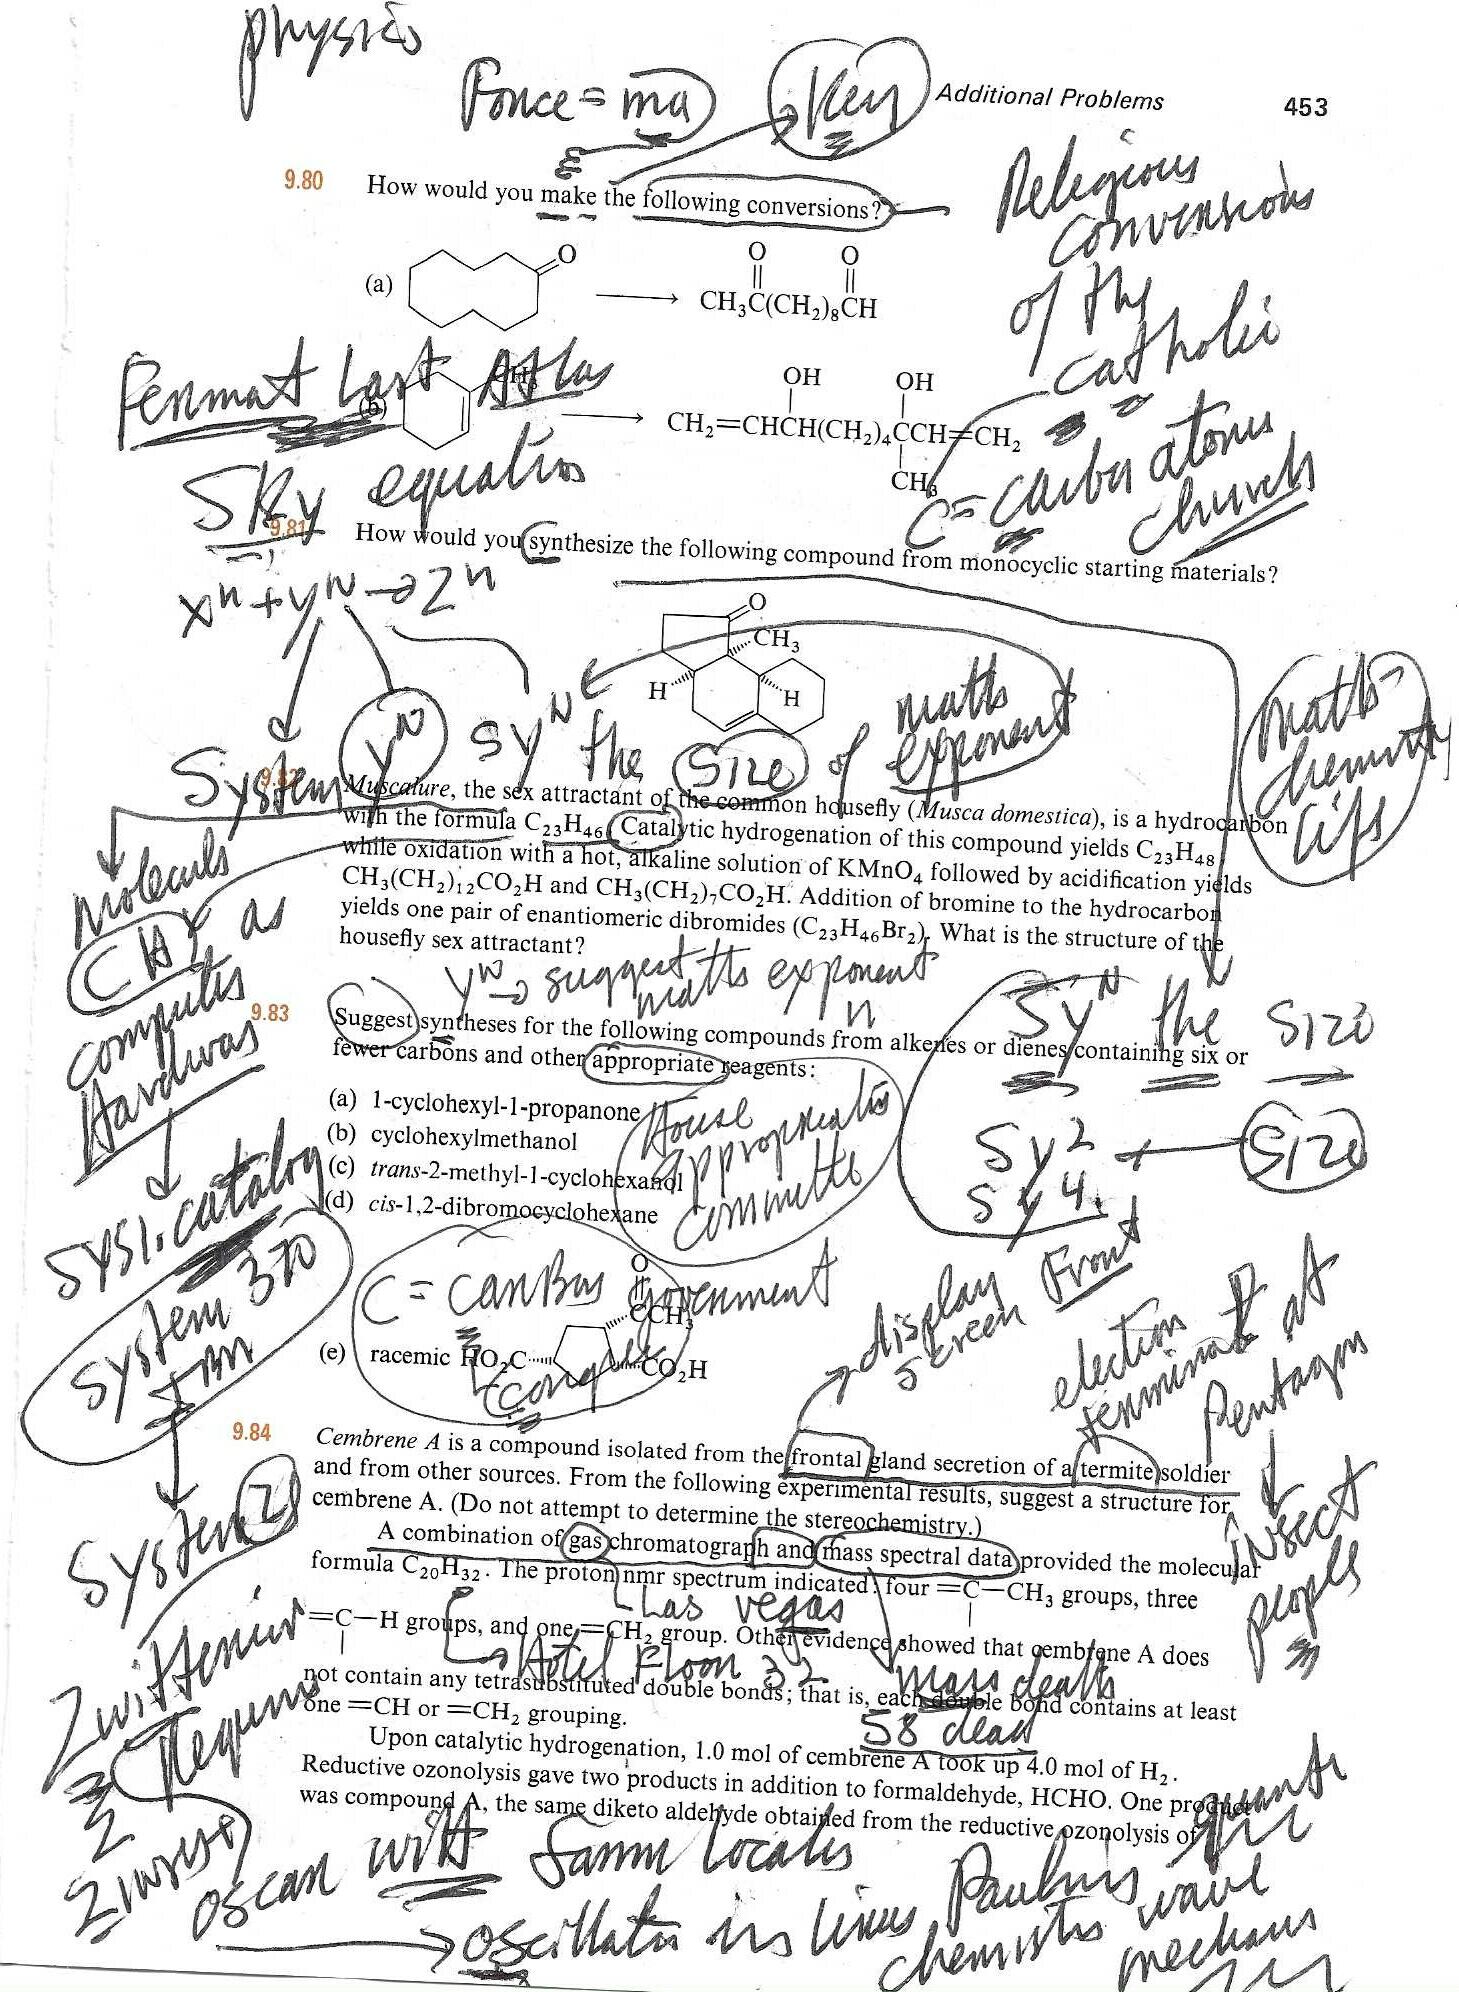 physics
Force = ma
Key
Additional Problems 453
Religious
conversions
of the
catholic
C = carbon atoms
church
9.80 How would you make the following conversions?
(a)
O
O O
CH₃C(CH₂)₈CH
Fermat Last Atlas
(b)
CH₃
OH OH
CH₂=CHCH(CH₂)₄CCH=CH₂
CH₃
Sky equation
9.81 How would you synthesize the following compound from monocyclic starting materials?
xⁿ + yⁿ → zⁿ
O
CH₃
H H
System yⁿ syⁿ the size of maths exponent
maths
chemistry
9.82 Muscalure, the sex attractant of the common housefly (Musca domestica), is a hydrocarbon
with the formula C₂₃H₄₆. Catalytic hydrogenation of this compound yields C₂₃H₄₈,
while oxidation with a hot, alkaline solution of KMnO₄ followed by acidification yields
CH₃(CH₂)₁₂CO₂H and CH₃(CH₂)₇CO₂H. Addition of bromine to the hydrocarbon
yields one pair of enantiomeric dibromides (C₂₃H₄₆Br₂). What is the structure of the
housefly sex attractant?
molecules
CH as
computer
Hardware
yⁿ → suggest maths exponent
n
Syⁿ the size
9.83 Suggest syntheses for the following compounds from alkenes or dienes containing six or
fewer carbons and other appropriate reagents:
(a) 1-cyclohexyl-1-propanone
(b) cyclohexylmethanol
(c) trans-2-methyl-1-cyclohexanol
(d) cis-1,2-dibromocyclohexane
House
appropriation
committee
Sy2 ← Size
Sy4.
SYS1.catalog
System 370
IBM
C = canBas government
O
CCH₃
(e) racemic HO₂C CO₂H
display
screen Front
election terminal at
Pentagon
9.84 Cembrene A is a compound isolated from the frontal gland secretion of a termite soldier
and from other sources. From the following experimental results, suggest a structure for
cembrene A. (Do not attempt to determine the stereochemistry.)
A combination of gas chromatograph and mass spectral data provided the molecular
formula C₂₀H₃₂. The proton nmr spectrum indicated: four =C—CH₃ groups, three
=C—H groups, and one =CH₂ group. Other evidence showed that cembrene A does
not contain any tetrasubstituted double bonds; that is, each double bond contains at least
one =CH or =CH₂ grouping.
Upon catalytic hydrogenation, 1.0 mol of cembrene A took up 4.0 mol of H₂.
Reductive ozonolysis gave two products in addition to formaldehyde, HCHO. One product
was compound A, the same diketo aldehyde obtained from the reductive ozonolysis of
System 2
insect
people
Las vegas
Hotel Floor 32
mass deaths
58 dead
Zwitterion
Requires
2
oscar with Samu Locales
oscillator in linus Paulins
chemists wave
mechans